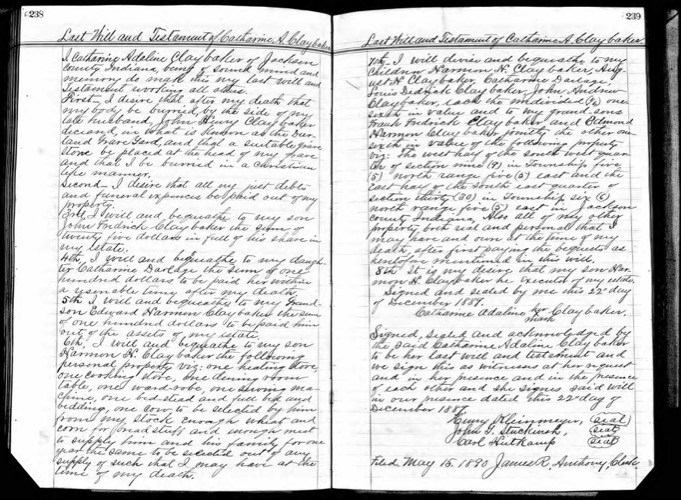 238
Last Will and Testament of Catharine A. Claybaker
I Catharine Adaline Claybaker of Jackson
County Indiana, being of sound mind and
memory do make this my last will and
testament revoking all others.
First, I desire that after my death that
my body be burried by the side of my
late husband, John Henry Claybaker
deceased, in what is known as the
land Grave Yard, and that a suitable grave
stone be placed at the head of my grave
and that I be burried in a Christian
like manner.
Second I desire that all my just debts
and funeral expences be paid out of my
property.
3rd, I will and bequeathe to my son
John Fredrick Claybaker the sum of
twenty five dollars in full of his share in
my estate.
4th, I will and bequeathe to my daugh-
ter Catharine Darlage the sum of one
hundred dollars to be paid her within
a reasonable time after my death.
5th I will and bequeathe to my Grand
son Edward Harmon Claybaker the sum
of one hundred dollars to be paid him
out of the assets of my estate.
6th, I will and bequeathe to my son
Harmon H. Claybaker the following
personal property viz: one heating stove,
one cooking stove, one dining room
table, one wardrobe, one sewing ma-
chine, one bedstead and full bed and
bedding, one cow to be selected by him
from my stock enough wheat and
corn for bread stuff and enough meat
to supply him and his family for one
year the same to be selected out of any
supply of such that I may have at the
time of my death.
239
Last Will and Testament of Catharine A. Claybaker
7th, I will devise and bequeathe to my
Children Harmon H. Claybaker,
H. Claybaker, Catharine Darlage
Louis Dedrick Claybaker, John Andrew
Claybaker, each the undivided (1/6) one
sixth in value and to my grand sons
Frank Fredrick Claybaker and Edmond
Harmon Claybaker jointly the other one
sixth in value of the following property
viz: The west half of the south west quar
ter of section nine (9) in Township five
(5) north range five (5) east and the
east half of the south east quarter of
section thirty (30) in Township six (6)
north range five (5) east in Jackson
County Indiana, Also all of my other
property both real and personal that I
may have and own at the time of my
death, after first paying the bequests as
hertofore mentioned in this will.
8th It is my desire that my son Har
mon H. Claybaker be executor of my estate.
Signed and sealed by me this 22nd day
of December 1887.
Catharine Adaline her mark Claybaker.
Signed, Sealed and acknowledged by
the said Catharine Adaline Claybaker
to be her last will and testament and
we sign this as witnesses at her request
and in her presence and in the presence
of each other and she signed said will
in our presence dated this 22nd day of
December 1887.
Henry Kleinmeyer, (seal)
John F. (seal)
Carl Heitkamp (seal)
Filed May 15, 1890 James R. Anthony, Clerk